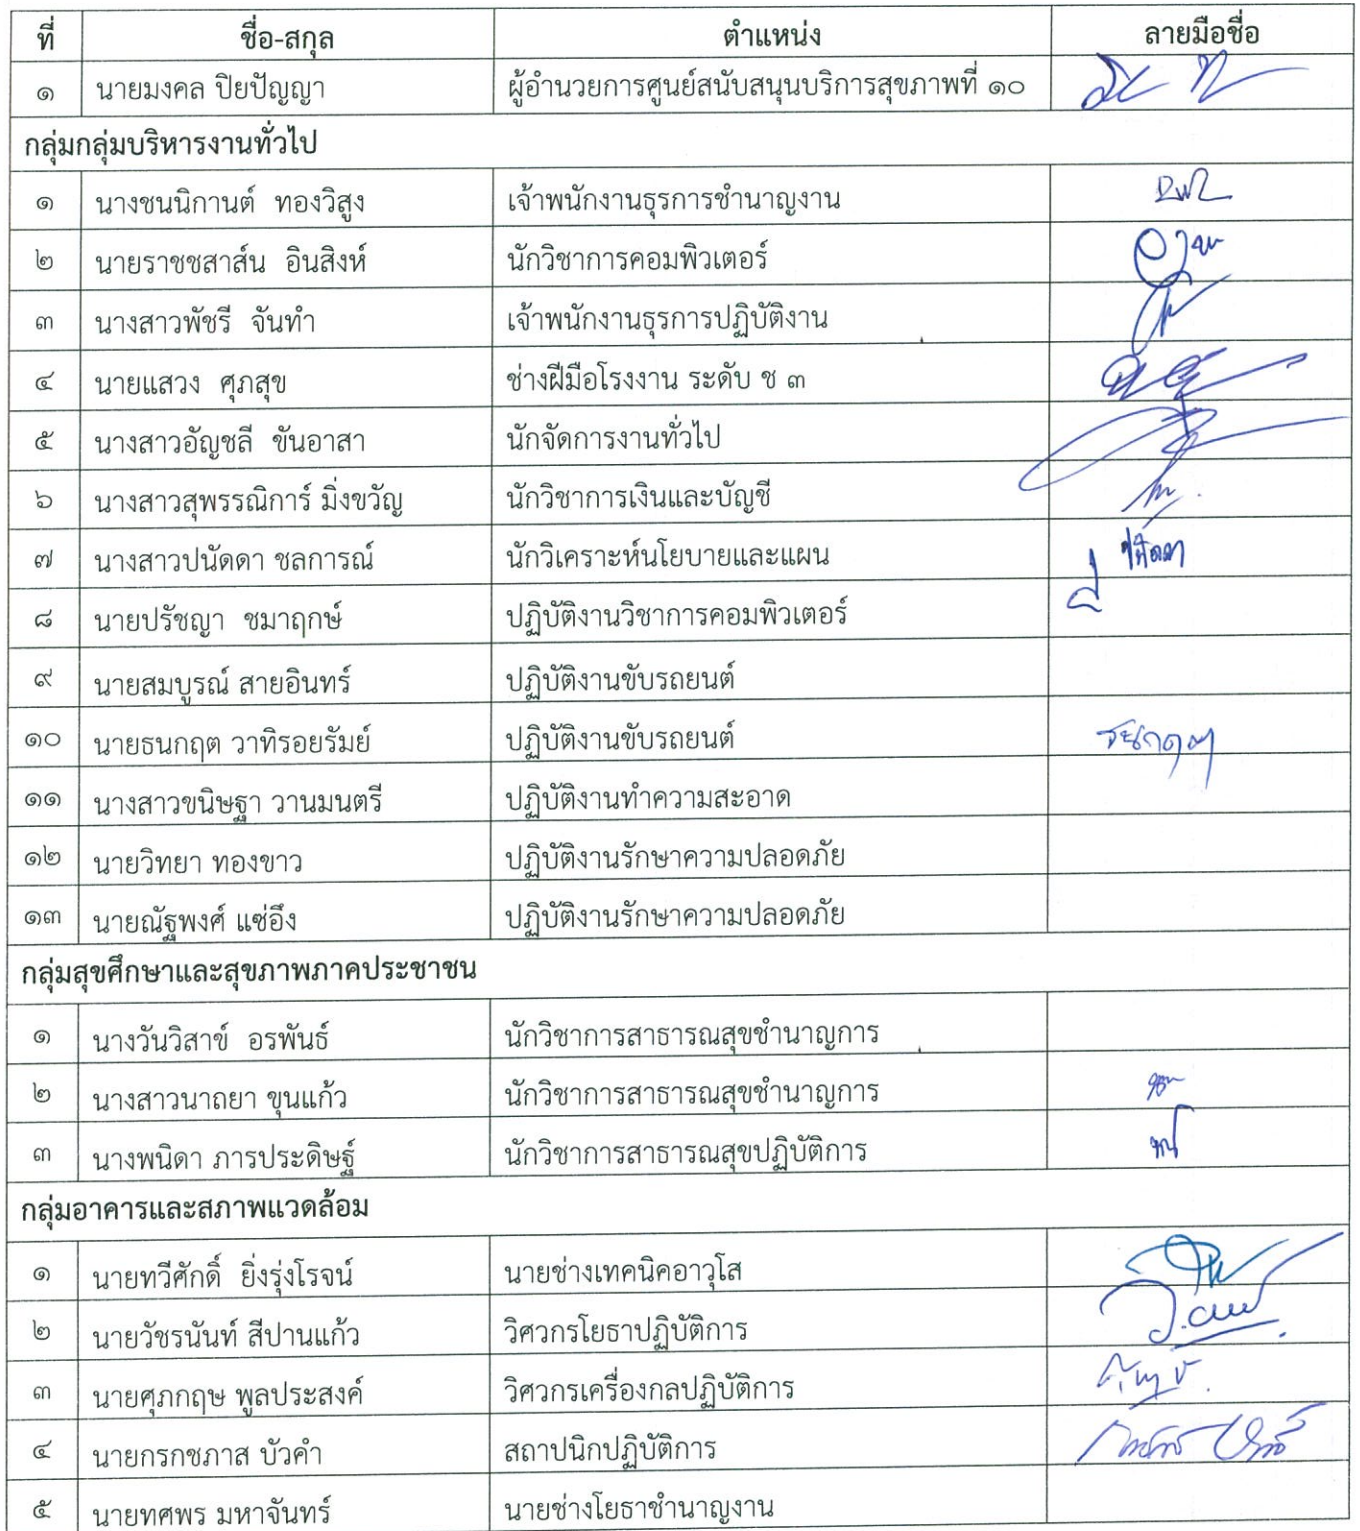 ที่ ชื่อ-สกุล ตำแหน่ง ลายมือชื่อ
๑ นายมงคล ปิยปัญญา ผู้อำนวยการศูนย์สนับสนุนบริการสุขภาพที่ ๑๐
กลุ่มกลุ่มบริหารงานทั่วไป
๑ นางชนนิกานต์ ทองวิสูง เจ้าพนักงานธุรการชำนาญงาน
๒ นายราชชสาส์น อินสิงห์ นักวิชาการคอมพิวเตอร์
๓ นางสาวพัชรี จันทำ เจ้าพนักงานธุรการปฏิบัติงาน
๔ นายแสวง ศุภสุข ช่างฝีมือโรงงาน ระดับ ช ๓
๕ นางสาวอัญชลี ขันอาสา นักจัดการงานทั่วไป
๖ นางสาวสุพรรณิการ์ มิ่งขวัญ นักวิชาการเงินและบัญชี
๗ นางสาวปนัดดา ชลการณ์ นักวิเคราะห์นโยบายและแผน
๘ นายปรัชญา ชมาฤกษ์ ปฏิบัติงานวิชาการคอมพิวเตอร์
๙ นายสมบูรณ์ สายอินทร์ ปฏิบัติงานขับรถยนต์
๑๐ นายธนกฤต วาทิรอยรัมย์ ปฏิบัติงานขับรถยนต์
๑๑ นางสาวขนิษฐา วานมนตรี ปฏิบัติงานทำความสะอาด
๑๒ นายวิทยา ทองขาว ปฏิบัติงานรักษาความปลอดภัย
๑๓ นายณัฐพงศ์ แซ่อึง ปฏิบัติงานรักษาความปลอดภัย
กลุ่มสุขศึกษาและสุขภาพภาคประชาชน
๑ นางวันวิสาข์ อรพันธ์ นักวิชาการสาธารณสุขชำนาญการ
๒ นางสาวนาถยา ขุนแก้ว นักวิชาการสาธารณสุขชำนาญการ
๓ นางพนิดา ภารประดิษฐ์ นักวิชาการสาธารณสุขปฏิบัติการ
กลุ่มอาคารและสภาพแวดล้อม
๑ นายทวีศักดิ์ ยิ่งรุ่งโรจน์ นายช่างเทคนิคอาวุโส
๒ นายวัชรนันท์ สีปานแก้ว วิศวกรโยธาปฏิบัติการ
๓ นายศุภกฤษ พูลประสงค์ วิศวกรเครื่องกลปฏิบัติการ
๔ นายกรกชภาส บัวคำ สถาปนิกปฏิบัติการ
๕ นายทศพร มหาจันทร์ นายช่างโยธาชำนาญงาน